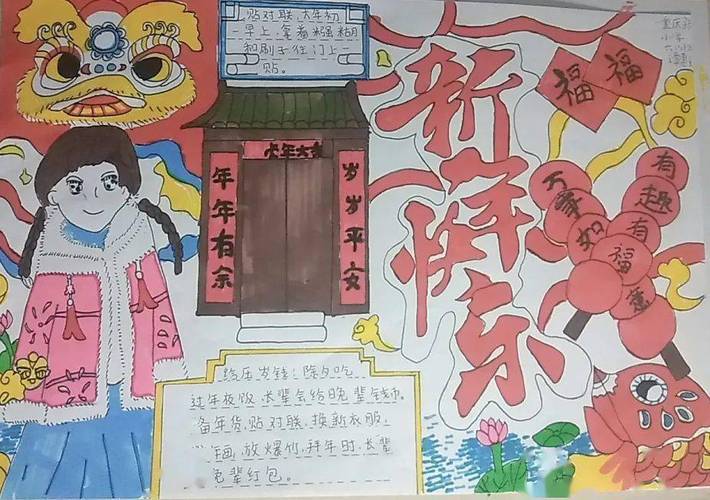 贴对联、大年初
一早上,拿着糨糊
和刷子往门上一
贴。
年年有余
岁岁平安
新年快乐
福
福
万事如意
有趣有福
给压岁钱!除夕吃
过年夜饭,长辈会给晚辈钱币。
备年货,贴对联、换新衣服,
画,放爆竹,拜年时,长辈
辈红包。